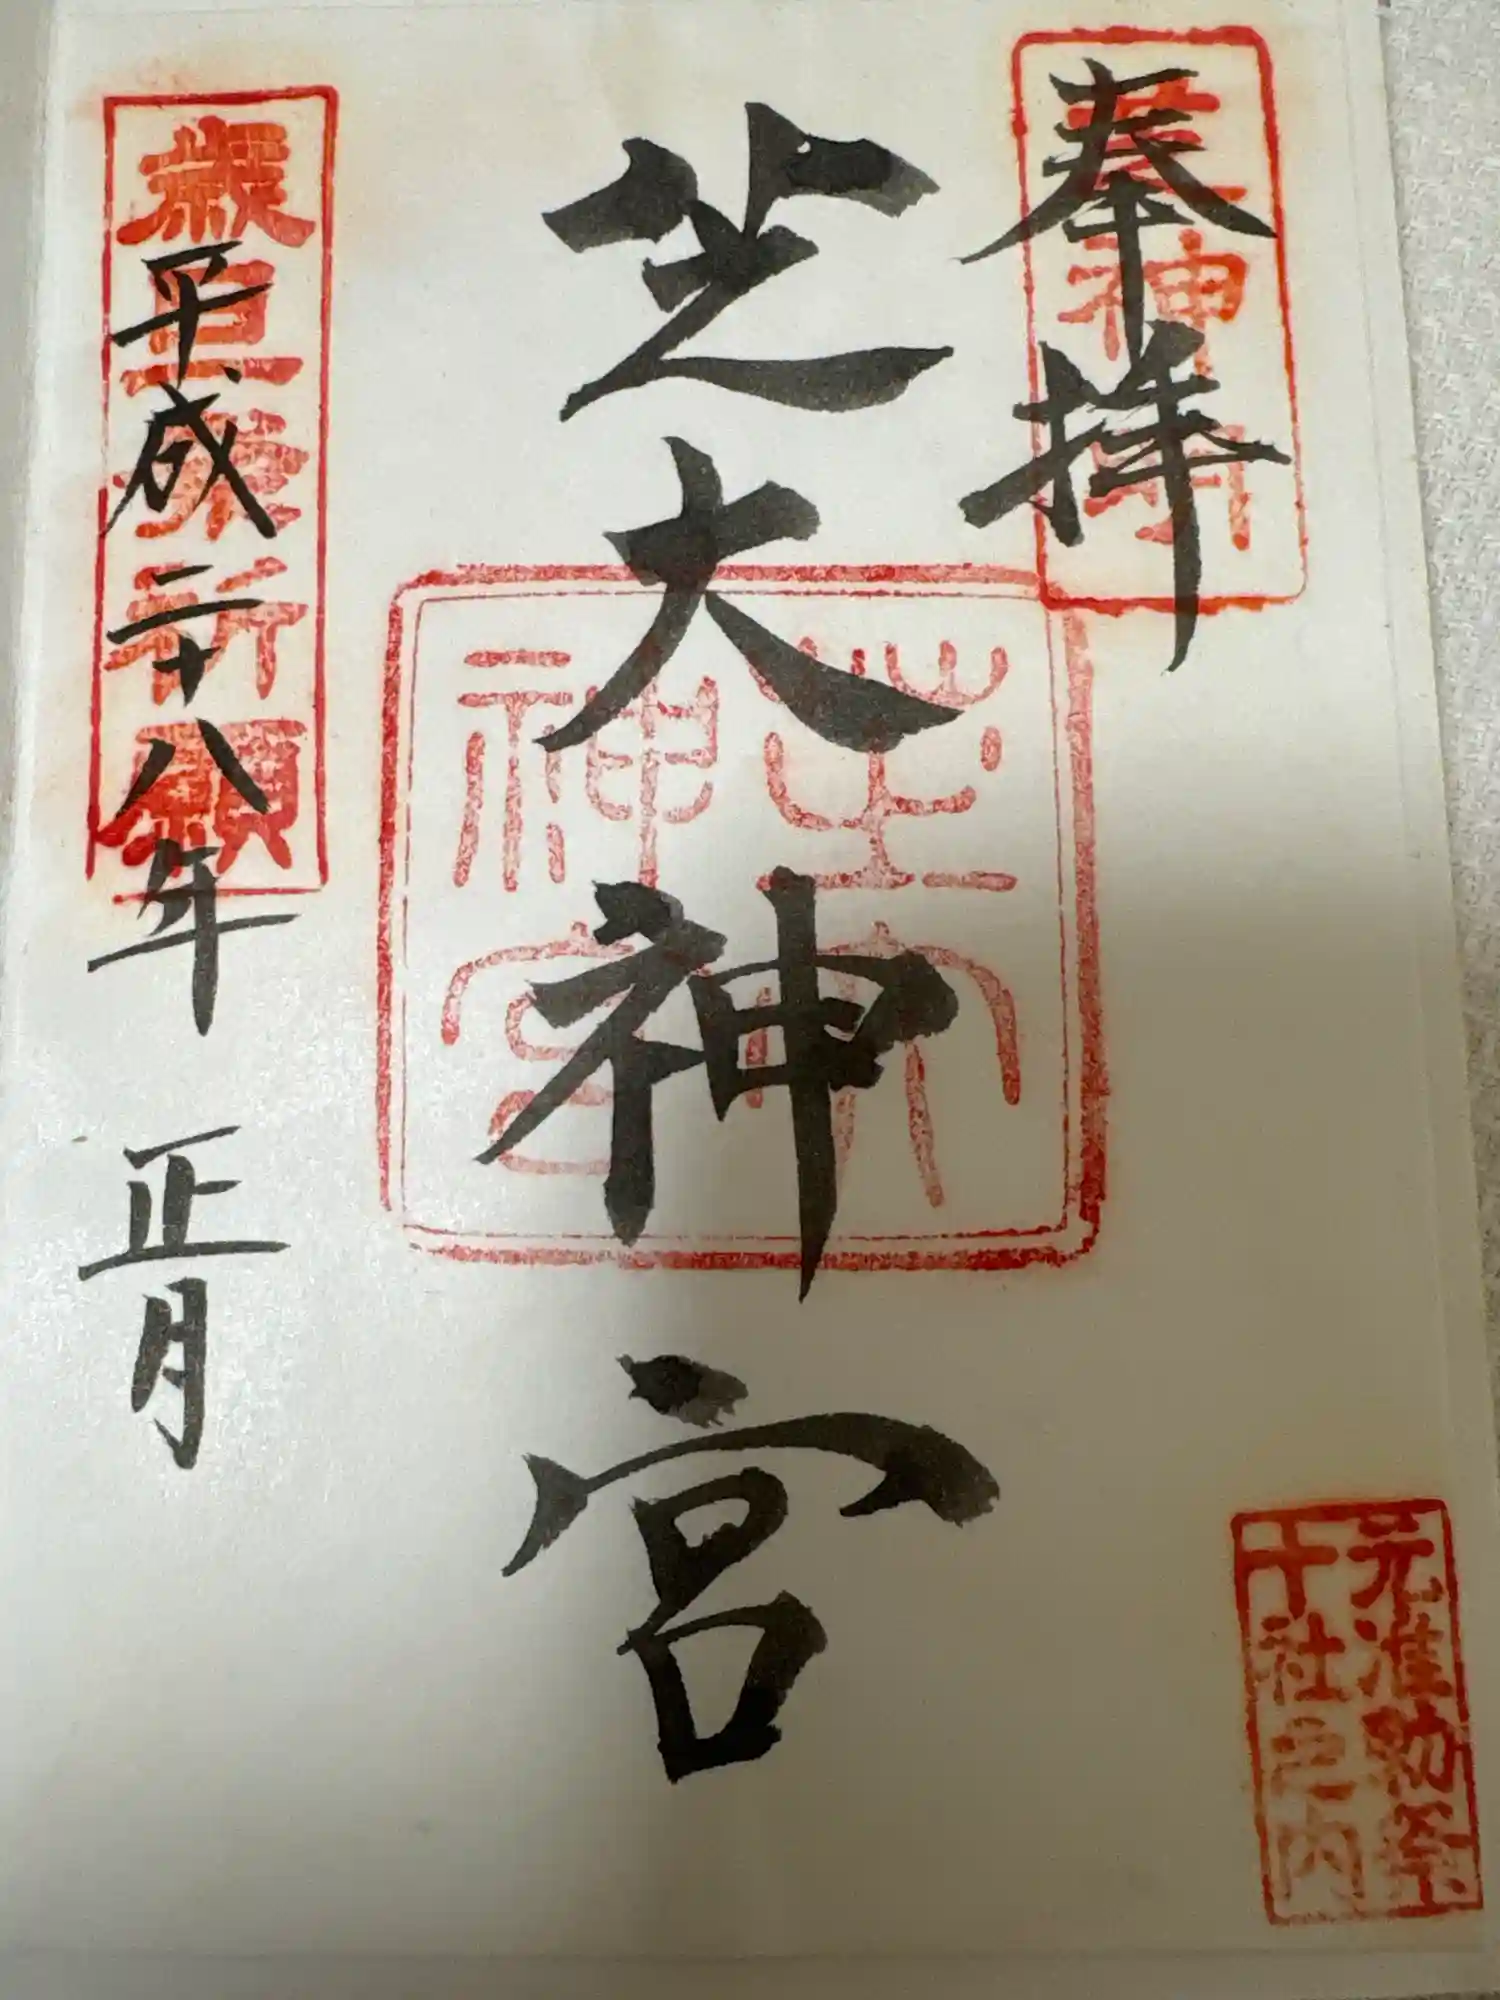 奉拝
芝神明
芝大神宮
芝大
神宮
平成二十八年 正月
歳旦祈願
元准勅祭
十社之内